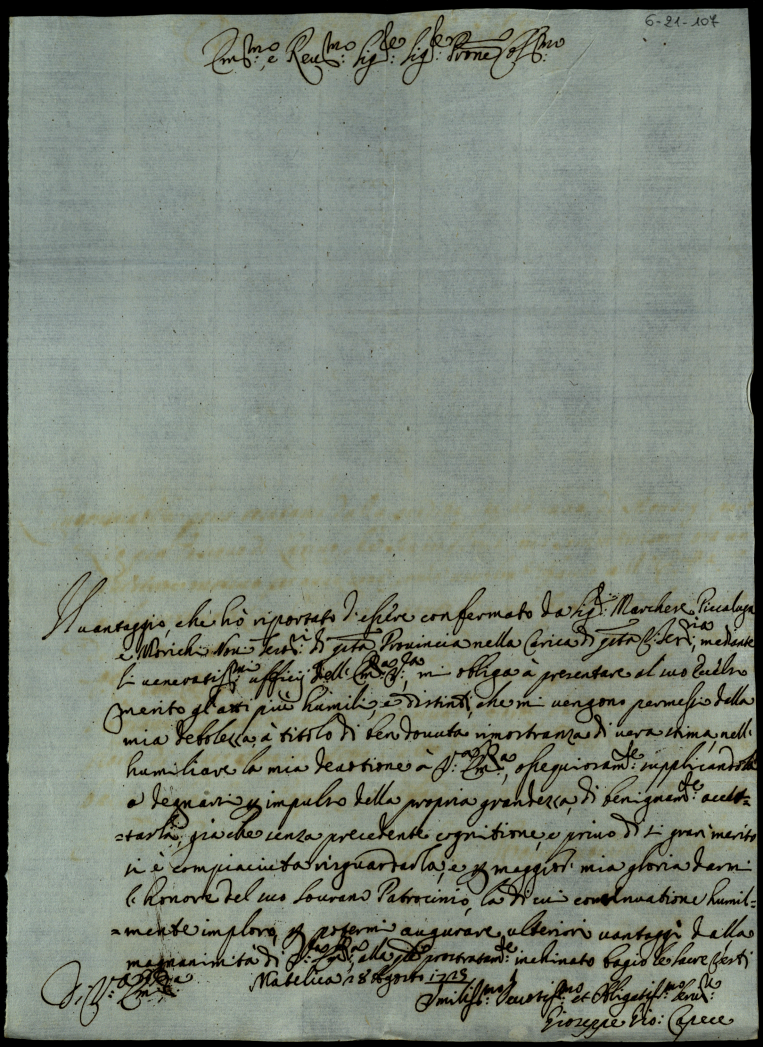 6-21-107
Em.mo e Reu.mo Sig.re Sig.re Prone Coll.mo
Il uantaggio che hò riportato d'essere confermato da Sig.ri Marchese Piccaluga
e Morichi di q.sta Prouincia nella Carica di q.sta mediante
li veneratiss.mi ufficij dell' Em.za V.ra mi obliga à presentare al suo Eccelso
merito gl'atti più humili, e distinti, che mi vengono permessi dalla
mia debolezza, à titolo di ben douuta rimostranza di uera stima, nell'
humiliare la mia deuotione à V.ra Em.za, ossequiosam.te supplicandola
a degnarsi p impulso della propria grandezza, di benignam.te accet=
=tarla, già che senza precedente cognitione, e priuo di si gran merito
si è compiaciuta risguardarla, e p maggior mia gloria darmi
l'honore del suo Sourano Patrocinio, la di cui continuatione humil=
=mente imploro, p potermi augurare ulteriori uantaggi dalla
magnanimità di V.ra Em.za, alla prostratam.te inchinato bagio le sacre Vesti
Di V.ra Em.za
Matelica 18 Agosto 1725
Humiliss.mo Deuotiss.mo et Obligatiss.mo Seru.re
Gioseppe Gio: Capece